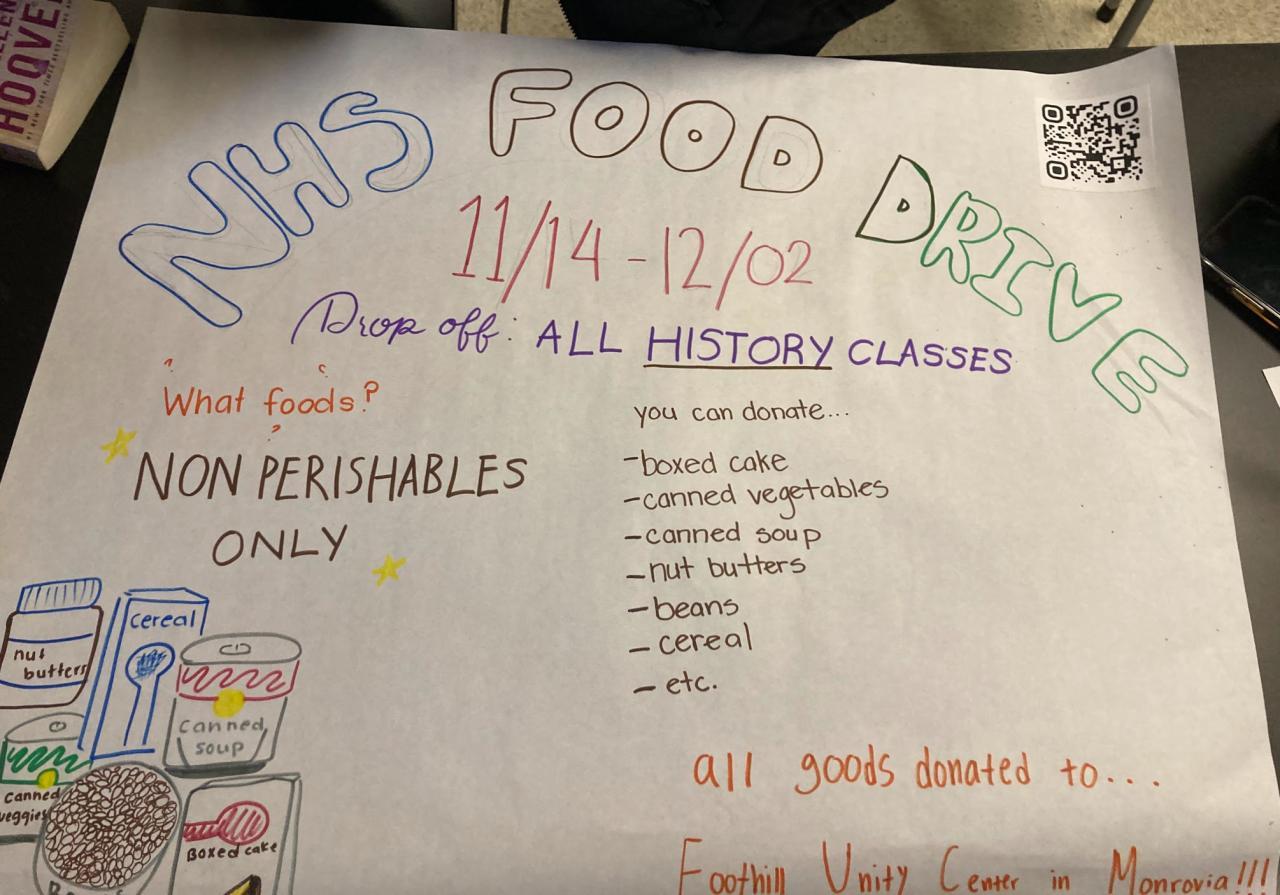 HOOVER
NHS FOOD DRIVE
11/14 - 12/02
Drop off: ALL HISTORY CLASSES
What foods?
NON PERISHABLES
ONLY
you can donate...
-boxed cake
-canned vegetables
-canned soup
-nut butters
-beans
- cereal
- etc.
nut
butters
cereal
canned
soup
canned
veggies
Boxed cake
all goods donated to...
Foothill Unity Center in Monrovia!!!